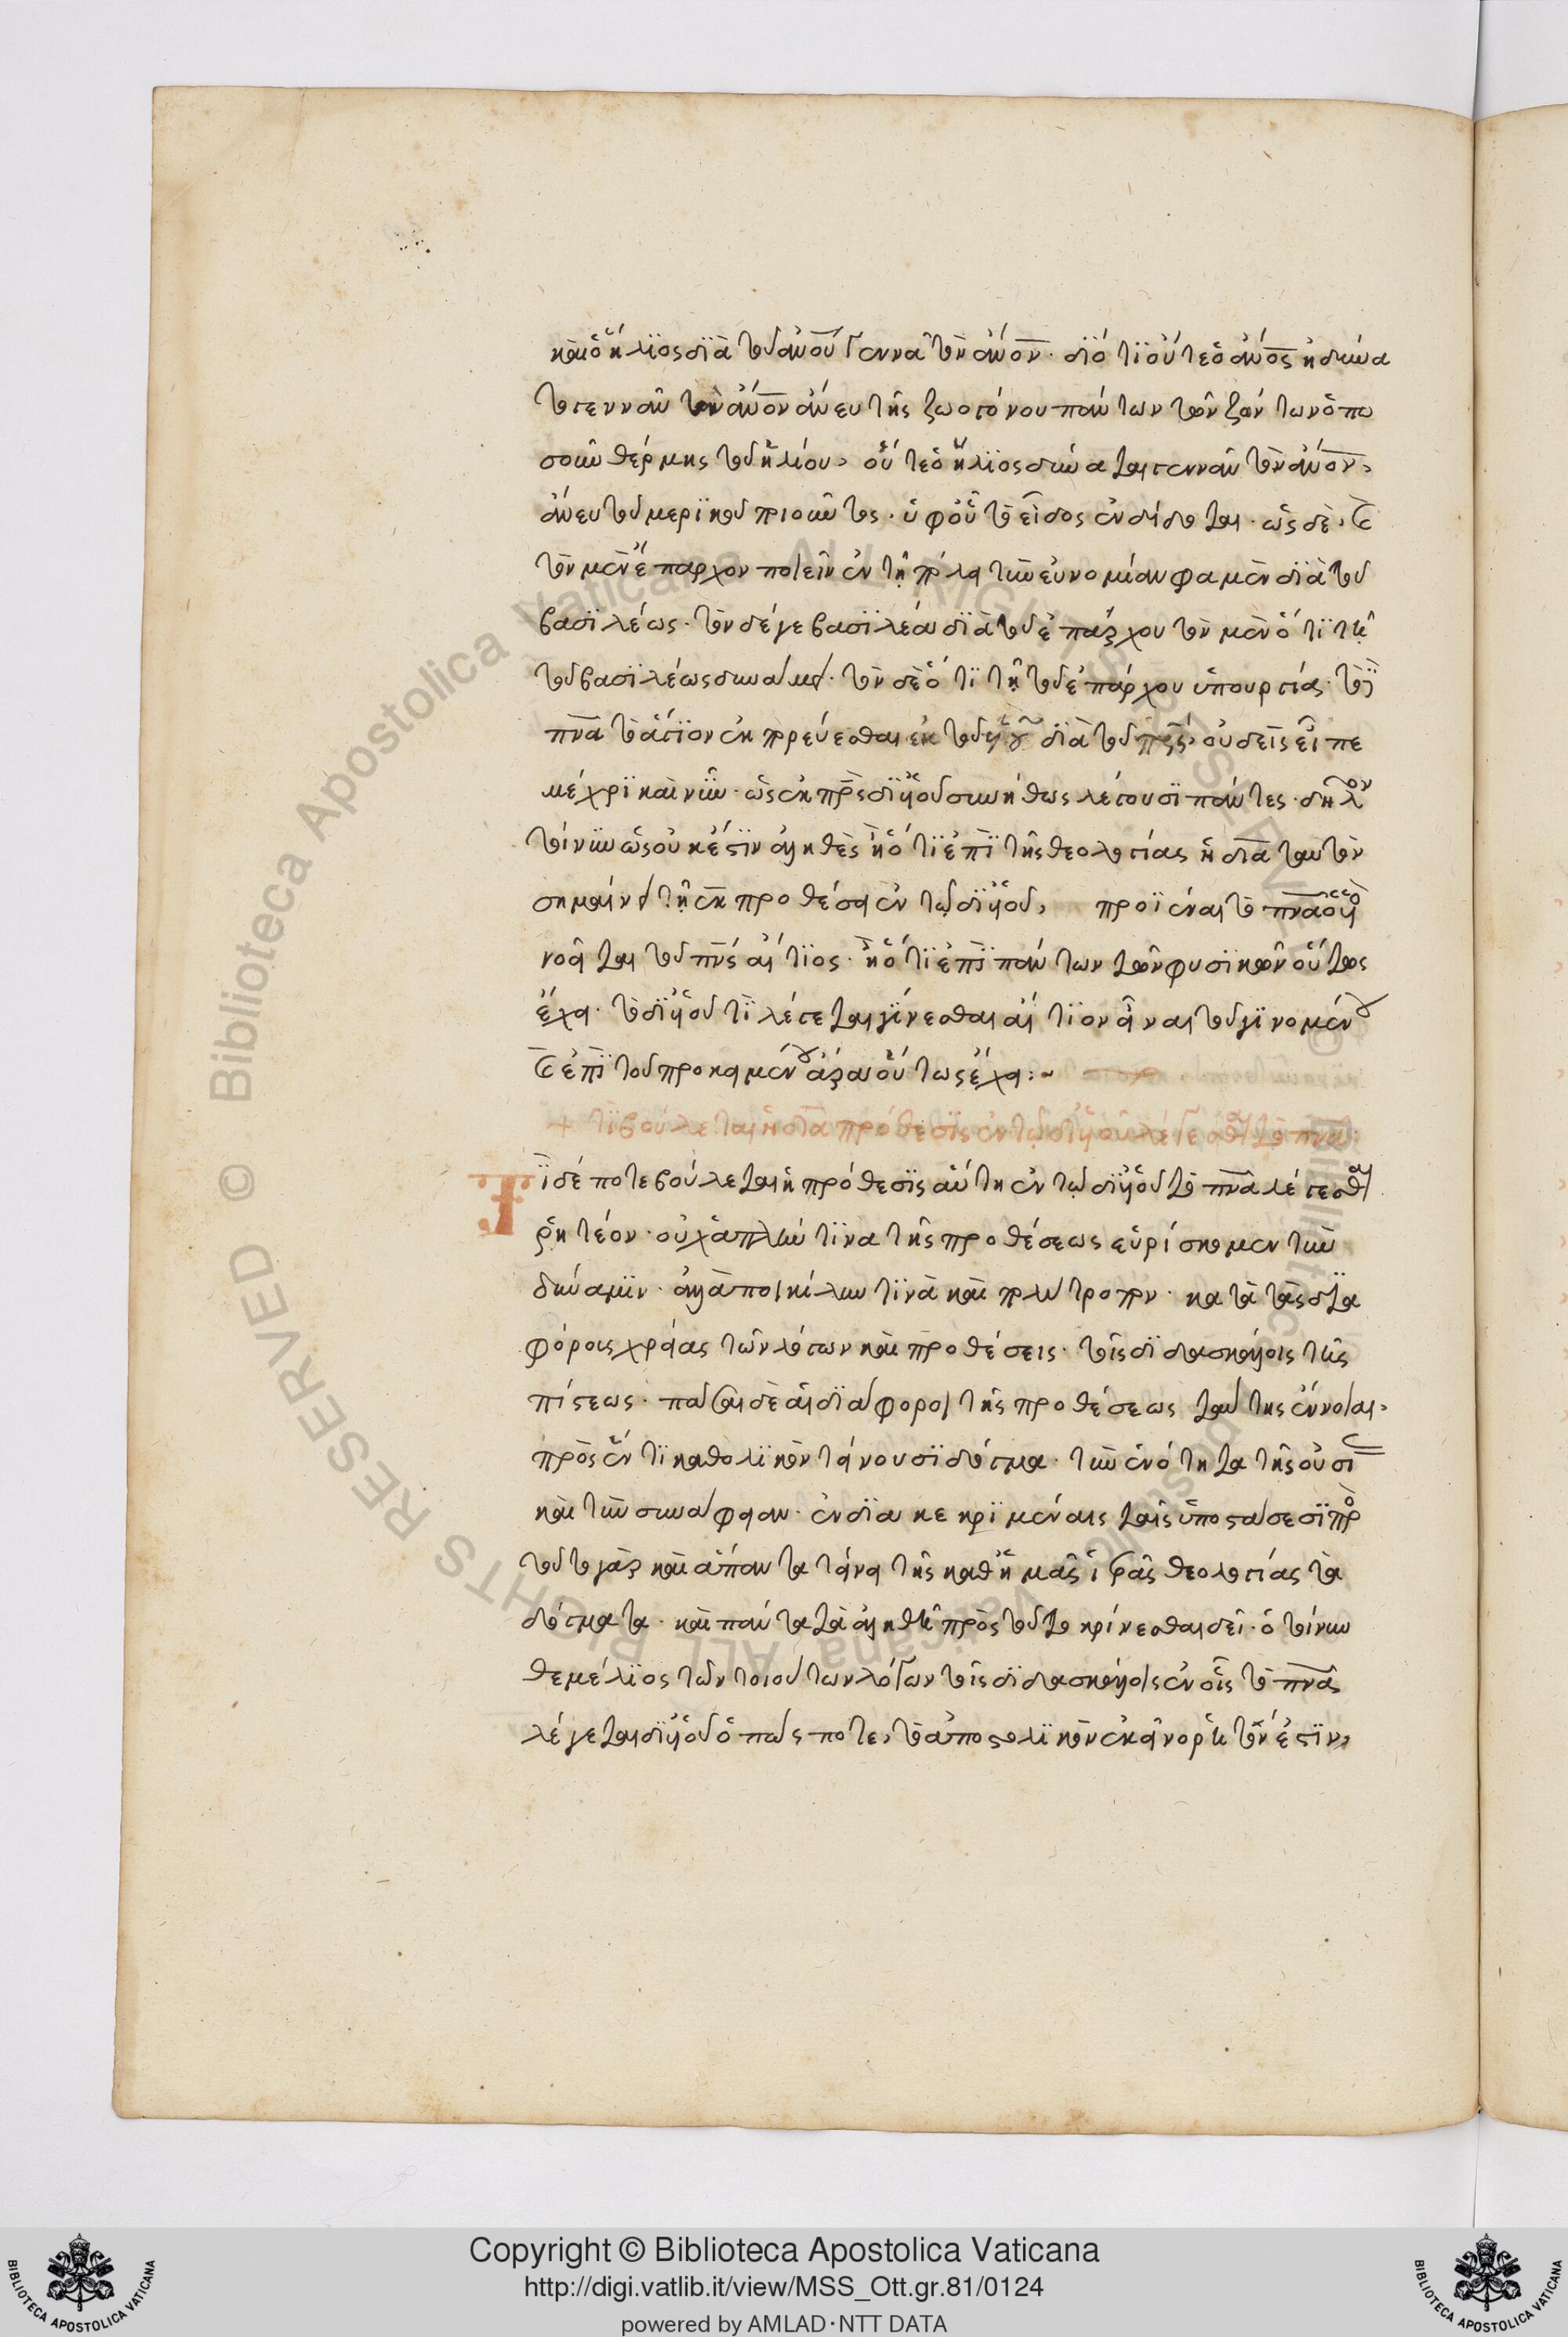 καὶ ὁ ἥλιος διὰ τοῦ ἀνου γεννᾶ τὸν ἄνον. διότι οὔτε ὁ ἄνος ἠδύνα
το γεννᾶν τὸν ἄνον ἄνευ τῆς ζωογόνου πάντων τῶν ζώντων ὁπω
σοῦν θέρμης τοῦ ἡλίου, οὔτε ὁ ἥλιος δύναται γεννᾶν τὸν ἄνον,
ἄνευ τοῦ μερικοῦ ποιοῦντος. ὑφ οὗ τὸ εἶδος ἐνδίδοται. ὡς δὲ καὶ
τὸν μὲν ἔπαρχον ποιεῖν ἐν τῇ πόλει τὴν εὐνομίαν φαμὲν διὰ τοῦ
βασιλέως. τὸν δέ γε βασιλέα διὰ τοῦ ἐπάρχου τὸν μὲν ὅτι τῇ
τοῦ βασιλέως δυνάμει. τὸν δὲ ὅτι τῇ τοῦ ἐπάρχου ὑπουργίᾳ. τὸ
πνα τὸ ἅγιον ἐκπορεύεσθαι ἐκ τοῦ υἱοῦ διὰ τοῦ πρς, οὐδεὶς εἶπε
μέχρι καὶ νῦν. ὡς ἐκ πρς δι υἱοῦ συνήθως λέγουσι πάντες. δῆλον
τοίνυν ὡς οὐκ ἔστιν ἀληθὲς ὅτι ἐπὶ τῆς θεολογίας ἡ διὰ ταυτὸν
σημαίνει τῇ ἐκ προθέσει ἐν τῷ δι υἱοῦ, προϊέναι τὸ πνα ὁ υἱὸς
νοεῖται τοῦ πνς αἴτιος. ὅτι ἐπὶ πάντων τῶν φυσικῶν οὕτως
ἔχει. τὸ δι υἱοῦ τι λέγεται γίνεσθαι αἴτιον εἶναι τοῦ γινομένου
καὶ ἐπὶ τοῦ προκειμένου ἄρα οὕτως ἔχει:~
+ τί βούλεται ἡ διὰ πρόθεσις ἐν τῷ δι υἱοῦ λέγεσθαι τὸ πνα:
Τί δέ ποτε βούλεται ἡ πρόθεσις αὕτη ἐν τῷ δι υἱοῦ τὸ πνα λέγεσθαι
ῥητέον. οὐχ ἁπλῆν τινα τῆς προθέσεως εὑρίσκομεν τὴν
δύναμιν. ἀλλὰ ποικίλην τινὰ καὶ πολύτροπον. κατὰ τὰς δια
φόρους χρείας τῶν λόγων καὶ προθέσεις. τοῖς διδασκάλοις τῆς
πίστεως. πᾶσαι δὲ αἱ διάφοροι τῆς προθέσεως ταύτης ἔννοιαι,
πρὸς ἕν τι καθολικὸν τείνουσι δόγμα. τὴν ἑνότητα τῆς οὐσίας
καὶ τὴν συνάφειαν. ἐν διακεκριμέναις ταῖς ὑποστάσεσι πρὸς
τοῦτο γὰρ καὶ ἅπαντα τείνει τῆς καθ ἡμᾶς ἱερᾶς θεολογίας τὰ
δόγματα. καὶ πάντα τὰ ἀληθῆ πρὸς τοῦτο κρίνεσθαι δεῖ. ὁ τοίνυν
θεμέλιος τῶν τοιούτων λόγων τοῖς διδασκάλοις ἐν οἷς τὸ πνα
λέγεται δι υἱοῦ ὁπώς ποτε, τὸ ἀποστολικὸν ἐκεῖνο ῥητόν ἐστιν,
Copyright © Biblioteca Apostolica Vaticana
http://digi.vatlib.it/view/MSS_Ott.gr.81/0124
powered by AMLAD·NTT DATA